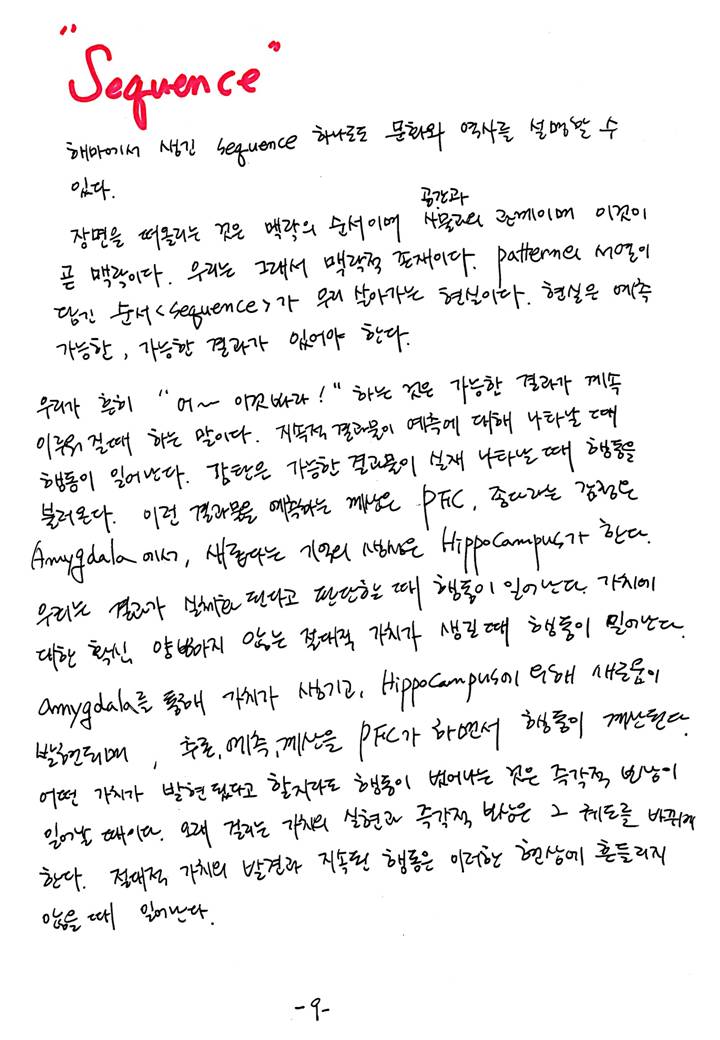 "Sequence"
해마에서 생긴 sequence 하나로도 문화와 역사를 설명할 수
있다.
공간과
장면을 떠올리는 것은 맥락의 순서이며 사물과의 관계이며 이것이
곧 맥락이다. 우리는 그래서 맥락적 존재이다. pattern의 서열이
담긴 순서<sequence>가 우리 살아가는 현실이다. 현실은 예측
가능한, 가능한 결과가 있어야 한다.
우리가 흔히 "어~ 이것봐라!" 하는 것은 가능한 결과가 계속
이루어 질때 하는 말이다. 지속적 결과물이 예측에 대해 나타날 때
행동이 일어난다. 감탄은 가능한 결과물이 실재 나타날 때 행동을
불러온다. 이런 결과물을 예측하는 계산은 PFC, 좋다라는 감정은
Amygdala에서, 새롭다는 기억의 생성은 Hippocampus가 한다.
우리는 결과가 실체화 된다고 판단하는 때 행동이 일어난다. 가치에
대한 확신, 양보하지 않는 절대적 가치가 생길 때 행동이 일어난다.
amygdala를 통해 가치가 생기고, Hippocampus에 의해 새로움이
발현되며, 추론, 예측, 계산을 PFC가 하면서 행동이 계산된다.
어떤 가치가 발현됐다고 할지라도 행동이 벗어나는 것은 즉각적 반응이
일어날 때이다. 오래 걸리는 가치의 실현과 즉각적 반응은 그 궤도를 바뀌게
한다. 절대적 가치의 발견과 지속된 행동은 이러한 현상에 흔들리지
않을 때 일어난다.
-9-